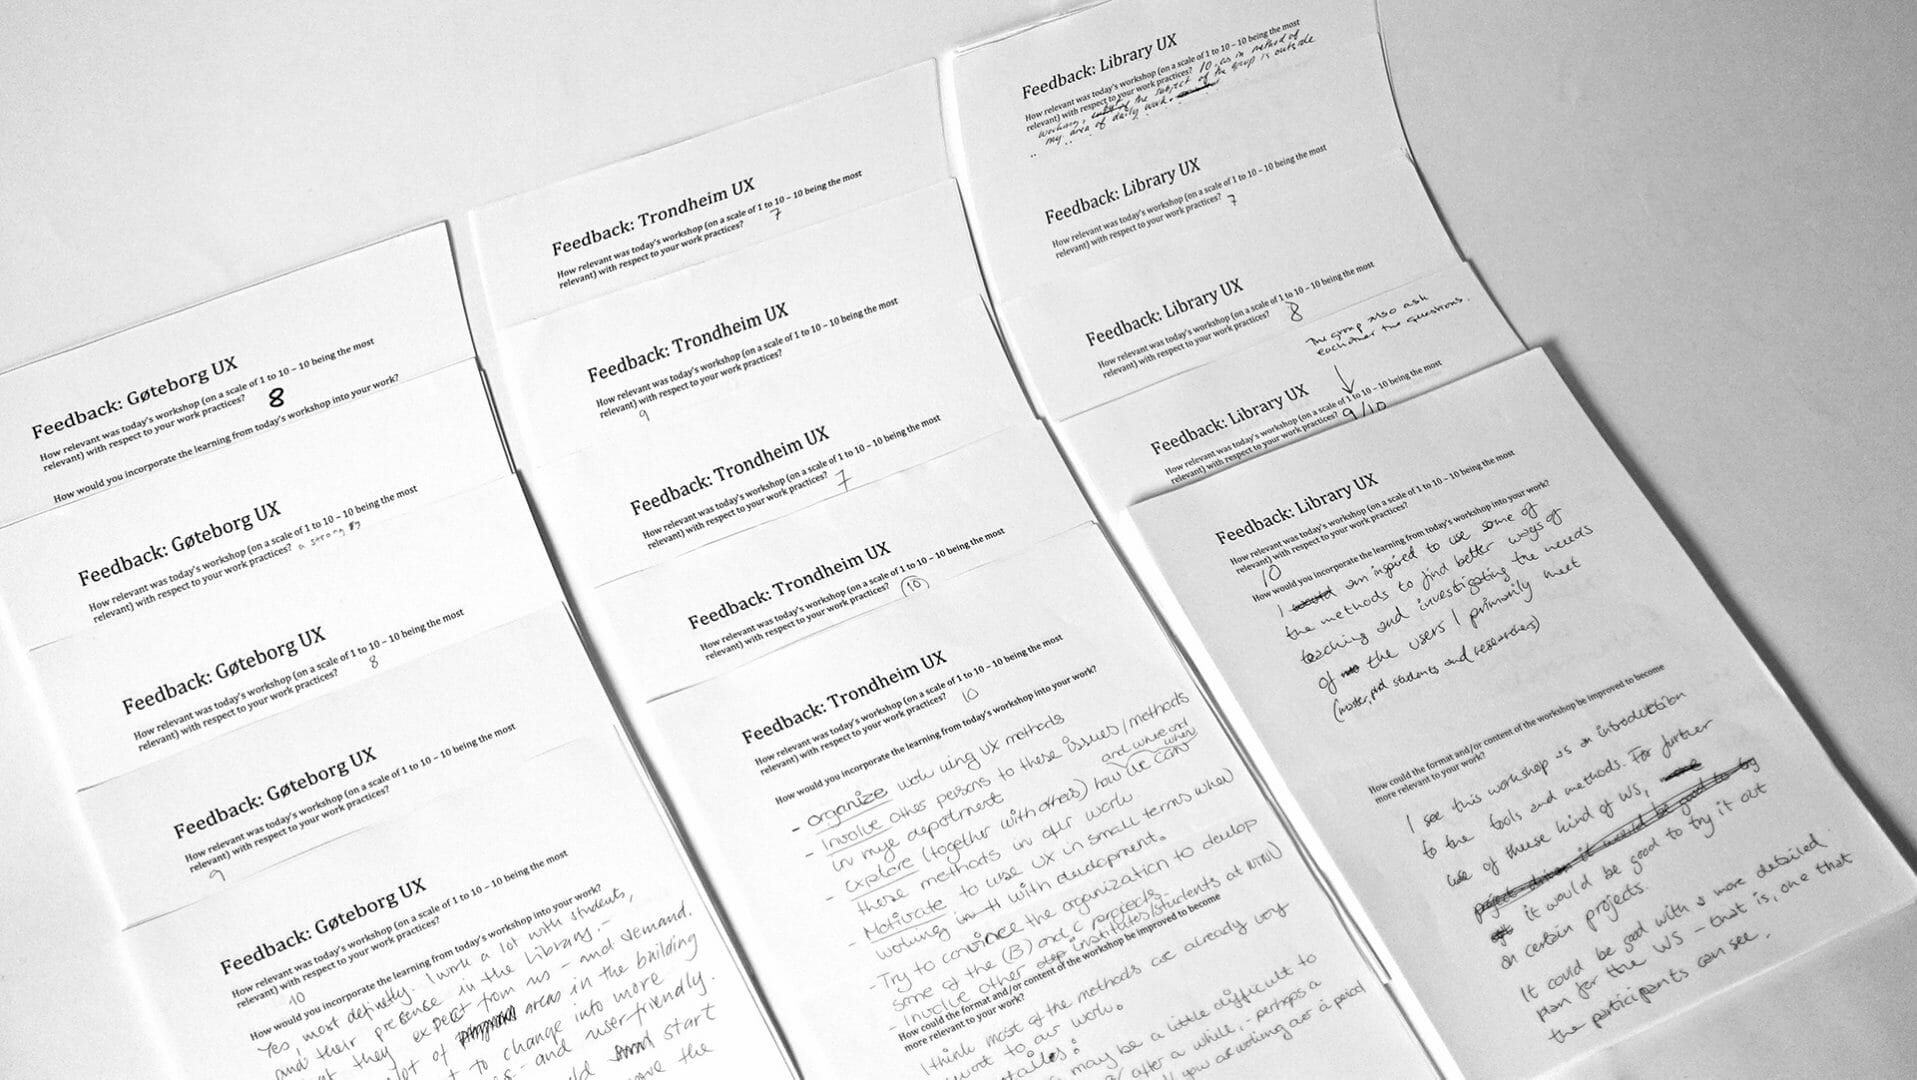 Feedback: Gøteborg UX
How relevant was today's workshop (on a scale of 1 to 10 – 10 being the most
relevant) with respect to your work practices? 8
How would you incorporate the learning from today's workshop into your work?
Feedback: Gøteborg UX
How relevant was today's workshop (on a scale of 1 to 10 – 10 being the most
relevant) with respect to your work practices? a strong
Feedback: Gøteborg UX
How relevant was today's workshop (on a scale of 1 to 10 – 10 being the most
relevant) with respect to your work practices? 8
Feedback: Gøteborg UX
How relevant was today's workshop (on a scale of 1 to 10 – 10 being the most
relevant) with respect to your work practices?
9
Feedback: Gøteborg UX
How relevant was today's workshop (on a scale of 1 to 10 – 10 being the most
relevant) with respect to your work practices?
10
How would you incorporate the learning from today's workshop into your work?
Yes, most definetly. I work a lot with students,
and their presence in the Library. –
they expect from us – and demand.
lot of areas in the building
to change into more
and userfriendly.
start
the
Feedback: Trondheim UX
How relevant was today's workshop (on a scale of 1 to 10 – 10 being the most
relevant) with respect to your work practices? 7
Feedback: Trondheim UX
How relevant was today's workshop (on a scale of 1 to 10 – 10 being the most
relevant) with respect to your work practices?
9
Feedback: Trondheim UX
How relevant was today's workshop (on a scale of 1 to 10 – 10 being the most
relevant) with respect to your work practices? 7
Feedback: Trondheim UX
How relevant was today's workshop (on a scale of 1 to 10 – 10 being the most
relevant) with respect to your work practices? 10
Feedback: Trondheim UX
How relevant was today's workshop (on a scale of 1 to 10 – 10 being the most
relevant) with respect to your work practices? 10
How would you incorporate the learning from today's workshop into your work?
- organize work using UX methods
- Involve other persons to these issues/methods
in mye department and where and when
- explore (together with others) how we can
those methods in our work
- Motivate to use UX in small terms when
working with development.
- Try to convince the organization to develop
some of the (B) and C projects
- Involve other institutes/students at NTNU
How could the format and/or content of the workshop be improved to become
more relevant to your work?
I think most of the methods are already very
to our work.
may be a little difficult to
after a while, – perhaps a
you working over a period
Feedback: Library UX
How relevant was today's workshop (on a scale of 1 to 10 – 10 being the most
relevant) with respect to your work practices? 10 as in method of
working, the subject of the group is outside
my area of daily work.
Feedback: Library UX
How relevant was today's workshop (on a scale of 1 to 10 – 10 being the most
relevant) with respect to your work practices? 7
Feedback: Library UX
How relevant was today's workshop (on a scale of 1 to 10 – 10 being the most
relevant) with respect to your work practices? 8
The group also ask
each other the questions.
Feedback: Library UX
How relevant was today's workshop (on a scale of 1 to 10 – 10 being the most
relevant) with respect to your work practices? 9/10
Feedback: Library UX
How relevant was today's workshop (on a scale of 1 to 10 – 10 being the most
relevant) with respect to your work practices?
10
How would you incorporate the learning from today's workshop into your work?
I would am inspired to use some of
the methods to find better ways of
teaching and investigating the needs
of the users I primarily meet
(master, phd students and researchers)
How could the format and/or content of the workshop be improved to become
more relevant to your work?
I see this workshop as an introduction
to the tools and methods. For further
use of these kind of WS,
project driven it would be good to try
it would be good to try it out
on certain projects.
It could be good with a more detailed
plan for the WS – that is, one that
the participants can see.